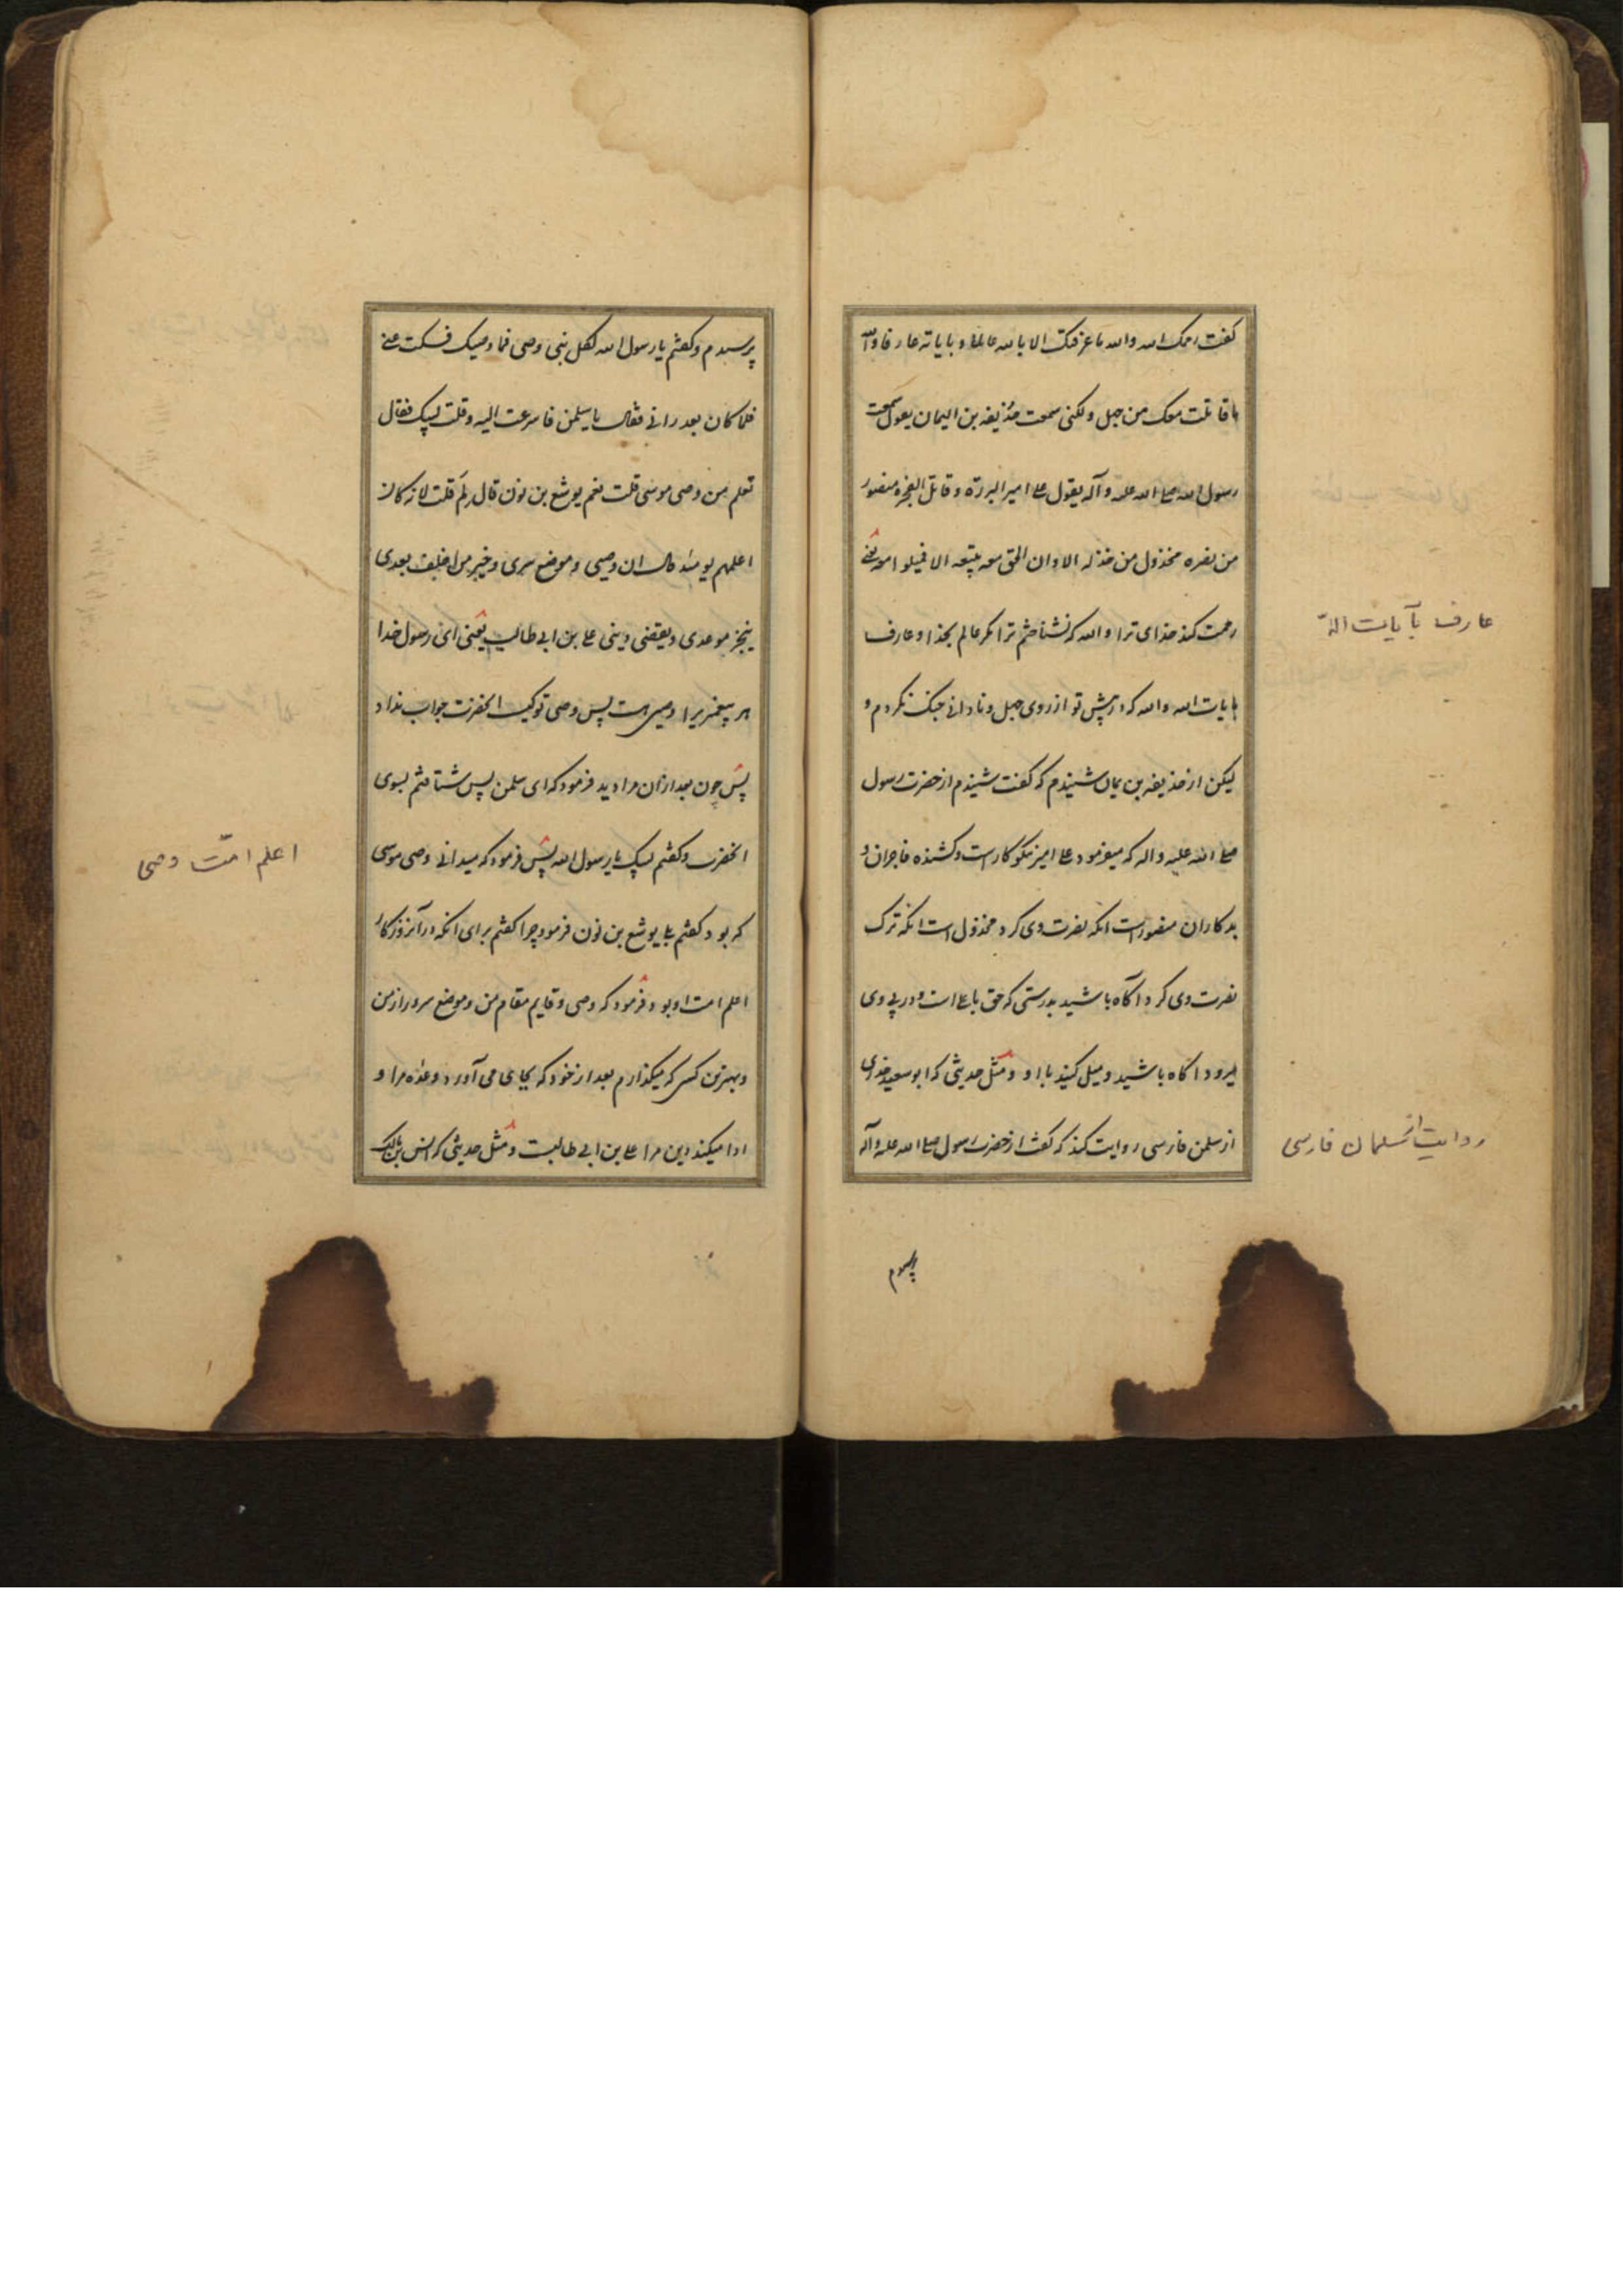 گفت رحمک الله والله ما عرفتک الا بالله عالما و بایاته عارفا والله
ما قاتلت معک من جهل ولکنی سمعت حذیفه بن الیمان یقول سمعت
رسول الله صلی الله علیه و آله یقول علی امیر البررة و قاتل الفجره منصور
من نصره مخذول من خذله الا وان الحق معه یتبعه الا فمیلوا معه یعنی
رحمت کند خدای ترا والله که نشناختم ترا مگر عالم بخدا و عارف
بایات الله والله که در پیش تو از روی جهل و نادانی جنک نکردم و
لیکن از حذیفه بن یمان شنیدم که گفت شنیدم از حضرت رسول
صلی الله علیه و اله که میفرمود علی امیر نیکوکارست و کشنده فاجران و
بدکاران منصور است انکه نصرت وی کرد مخذول است انکه ترک
نصرت وی کرد آگاه باشید بدرستی که حق با علی است و در پی وی
میرود اگاه باشید و میل کنید با او و مثل حدیثی که ابو سعید خدری
از سلمن فارسی روایت کند که گفت از حضرت رسول صلی الله علیه و آله
عارف بآیات اللّه
روایت از سلمان فارسی
پرسیدم
پرسیدم و کفتم یا رسول الله لکل نبی وصی فما وصیک فسکت عنی
فلما کان بعد رانی فقال یا سلمن فاسرعت الیه و قلت لبیک فقال
تعلم من وصی موسی قلت نعم یوشع بن نون قال لم قلت لانه کان
اعلمهم یومئذ قال ان وصیی و موضع سری و خیر من اخلف بعدی
ینجز موعدی و یقضی دینی علی بن ابی طالب یعنی ای رسول خدا
هر پیغمبریرا وصی هست پس وصی تو کیست انحضرت جواب نداد
پس چون بعد ازان مرا دید فرمود که ای سلمن پس شتافتم بسوی
انحضرت و کفتم لبیک یا رسول الله پس فرمود که میدانی وصی موسی
که بود کفتم بلی یوشع بن نون فرمود چرا کفتم برای انکه در آنروزکار
اعلم امت او بود فرمود که وصی و قایم مقام من و موضع سر و راز من
و بهترین کسی که میکذارم بعد از خود که بجای می آورد وعده مرا و
ادا میکند دین مرا علی بن ابی طالبست و مثل حدیثی که انس بن مالک
اعلم امّت وصی